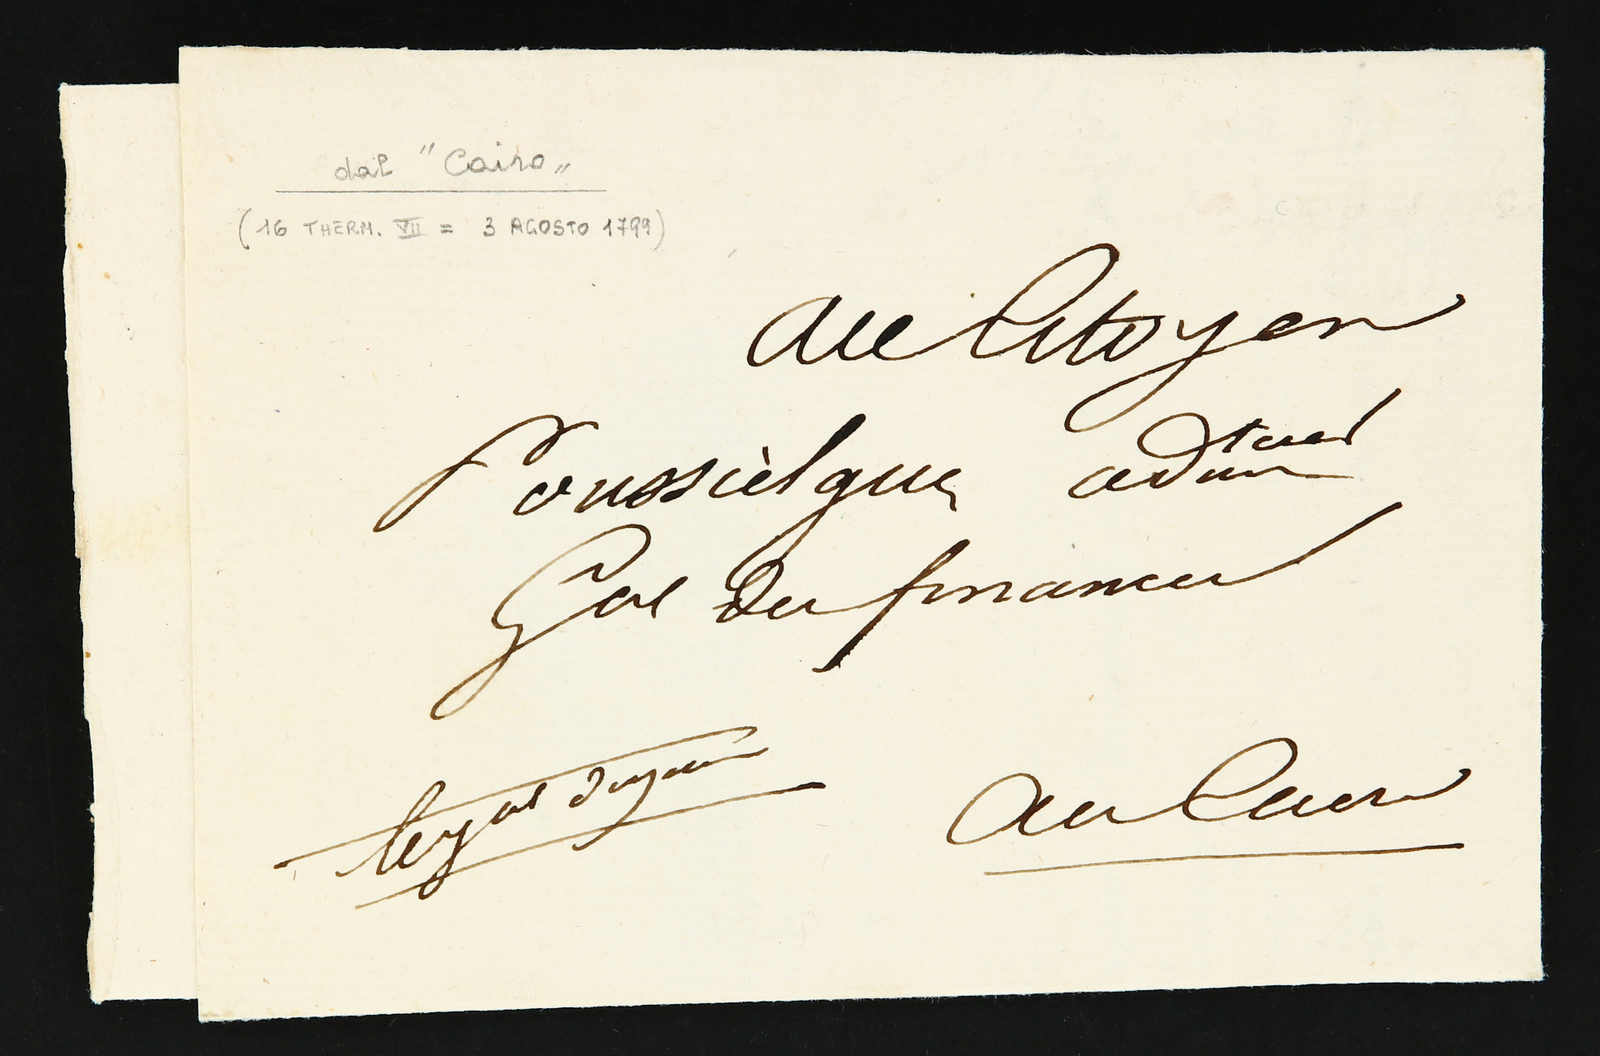 dal "Cairo"
(16 THERM. VII = 3 AGOSTO 1799)
Au Citoyen
Poussielgue adm teur
Gal des finances
Le gal
au Caire